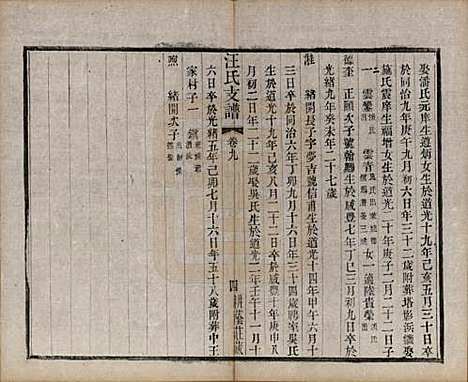 娶潘氏元庠生道炳女生於道光十九年己亥五月三十日卒
於同治九年庚午九月初六日年三十二歲附葬塔影浜繼娶
施氏震庠生福增女生於道光二十年庚子二月二十二日子
二 雲鑾 雲青 女一 適陸貴榮
德奎 正頤次子號翰鵬生於咸豐七年丁巳三月初九日卒於
光緒九年癸未年二十七歲
註 緒開長子字夢吉號信甫生於道光十四年甲午六月十
三日卒於同治六年丁卯九月十六日年三十四歲聘室吳氏
生於道光十九年己亥八月二十二日卒於咸豐十年庚申
月初二日年二十二歲娶吳氏生於道光二年壬午十一月
六日卒於光緒五年己卯七月十六日年五十八歲附葬中王
家村子一
照 緒開次子
汪氏支譜 卷九
四 耕蔭莊藏